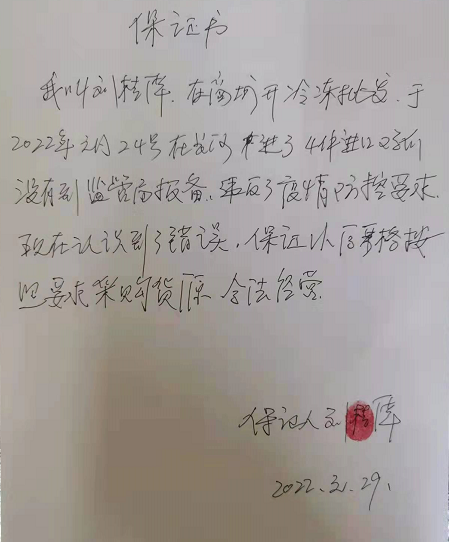 保证书
我叫刘精库.在商城开冷冻批发.于
2022年3月24号在 进了4件进口
没有到监管局报备.违反了疫情防控要求.
现在认识到了错误,保证以后严格按
照要求采购货源 合法经营.
保证人刘精库
2022.3.29.